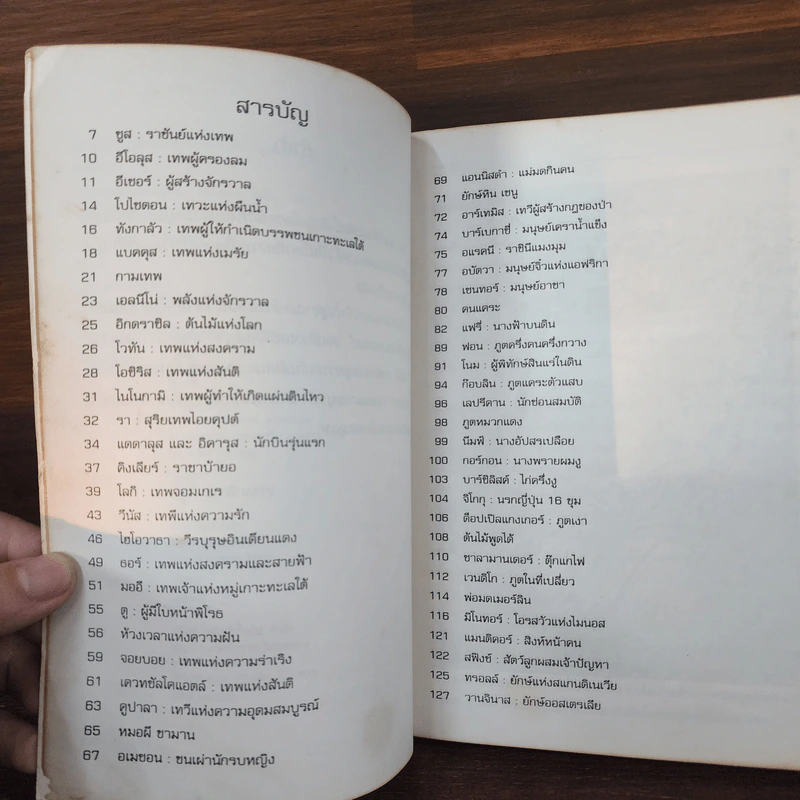 สารบัญ
7 ซูส : ราชันย์แห่งเทพ
10 อีโอลุส : เทพผู้ครองลม
11 อีเซอร์ : ผู้สร้างจักรวาล
14 โปไซดอน : เทวะแห่งผืนน้ำ
16 ทังกาลัว : เทพผู้ให้กำเนิดบรรพชนเกาะทะเลใต้
18 แบคคุส : เทพแห่งเมรัย
21 กามเทพ
23 เอลนีโน่ : พลังแห่งจักรวาล
25 อิกดราซิล : ต้นไม้แห่งโลก
26 โวทัน : เทพแห่งสงคราม
28 โอซิริส : เทพแห่งสันติ
31 ไนโนกามิ : เทพผู้ทำให้เกิดแผ่นดินไหว
32 รา : สุริยเทพไอยคุปต์
34 แดดาลุส และ อิคารุส : นักบินรุ่นแรก
37 คิงเลียร์ : ราชาบ้ายอ
39 โลกิ : เทพจอมเกเร
43 วีนัส : เทพีแห่งความรัก
46 ไฮโอวาธา : วีรบุรุษอินเดียนแดง
49 ธอร์ : เทพแห่งสงครามและสายฟ้า
51 มออี : เทพเจ้าแห่งหมู่เกาะทะเลใต้
55 ตู : ผู้มีใบหน้าพิโรธ
56 ห้วงเวลาแห่งความฝัน
59 จอยบอย : เทพแห่งความร่าเริง
61 เควทซัลโคแอตล์ : เทพแห่งสันติ
63 คูปาลา : เทวีแห่งความอุดมสมบูรณ์
65 หมอผี ชามาน
67 อเมซอน : ชนเผ่านักรบหญิง
69 แอนนิสดำ : แม่มดกินคน
71 ยักษ์หิน เชนู
72 อาร์เทมิส : เทวีผู้สร้างกฎของป่า
74 บาร์เบกาซี่ : มนุษย์เคราน้ำแข็ง
75 อแรคนี : ราชินีแมงมุม
77 อบัตวา : มนุษย์จิ๋วแห่งแอฟริกา
78 เซนทอร์ : มนุษย์อาชา
80 คนแคระ
82 แฟรี่ : นางฟ้าบนดิน
89 ฟอน : ภูตครึ่งคนครึ่งกวาง
91 โนม : ผู้พิทักษ์สินแร่ในดิน
94 ก๊อบลิน : ภูตแคระตัวแสบ
96 เลปรีคาน : นักซ่อนสมบัติ
98 ภูตหมวกแดง
99 นีมฟ์ : นางอัปสรเปลือย
100 กอร์กอน : นางพรายผมงู
103 บาร์ซิลิสค์ : ไก่ครึ่งงู
104 จิโกกุ : นรกญี่ปุ่น 16 ขุม
106 ด๊อปเปิลแกงเกอร์ : ภูตเงา
108 ต้นไม้พูดได้
110 ซาลามานเดอร์ : ตุ๊กแกไฟ
112 เวนดิโก : ภูตในที่เปลี่ยว
114 พ่อมดเมอร์ลิน
116 มิโนทอร์ : โอรสวัวแห่งไมนอส
121 แมนติคอร์ : สิงห์หน้าคน
122 สฟิงซ์ : สัตว์ลูกผสมเจ้าปัญหา
125 ทรอลล์ : ยักษ์แห่งสแกนดิเนเวีย
127 วานจินาส : ยักษ์ออสเตรเลีย